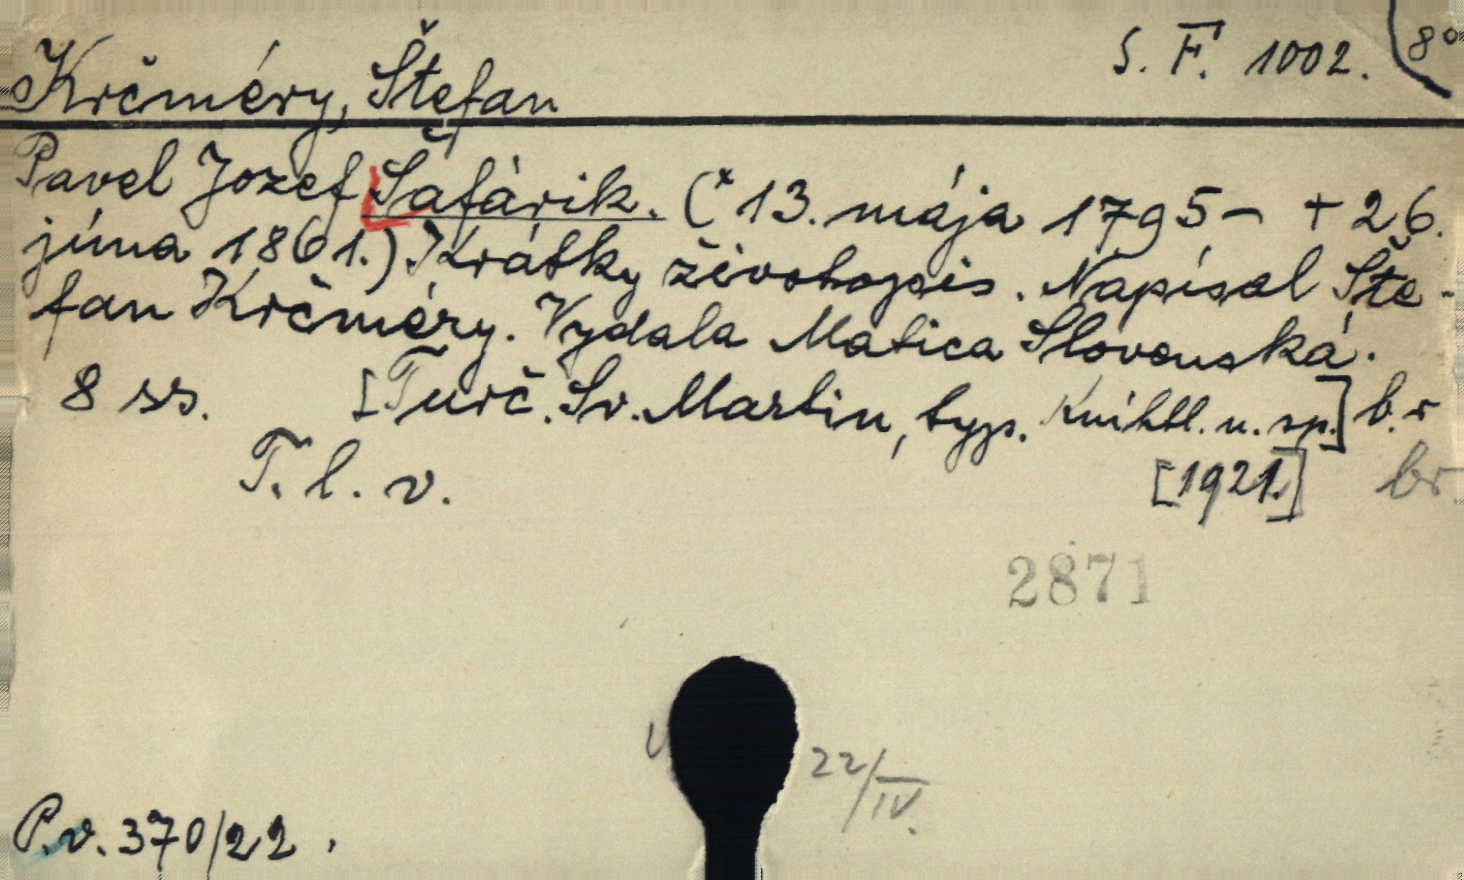 S. F. 1002. 8°
Krčméry, Štefan
Pavel Jozef Šafárik. (* 13. mája 1795 – + 26.
júna 1861.) Krátky životopis. Napísal Šte-
fan Krčméry. Vydala Matica Slovenská.
8 ss. [Turč. Sv. Martin, typ. Knihtl. u. sp.] b. r
T. l. v. [1921.] br.
2871
22/IV.
P. v. 370/22.